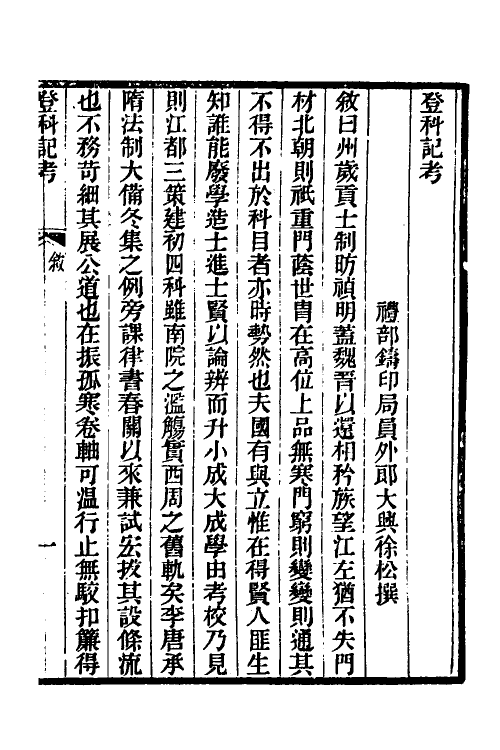 登科記考
禮部鑄印局員外郎大興徐松撰
敘曰州歲貢士制昉禎明蓋魏晉以還相矜族望江左猶不失門
材北朝則祇重門蔭世胄在高位上品無寒門窮則變變則通其
不得不出於科目者亦時勢然也夫國有與立惟在得賢人匪生
知誰能廢學造士進士賢以論辨而升小成大成學由考校乃見
則江都三策建初四科雖南院之濫觴實西周之舊軌矣李唐承
隋法制大備冬集之例旁課律書春關以來兼試宏拔其設條流
也不務苛細其展公道也在振孤寒卷軸可溫行止無駮扣簾得
登科記考
敘
一